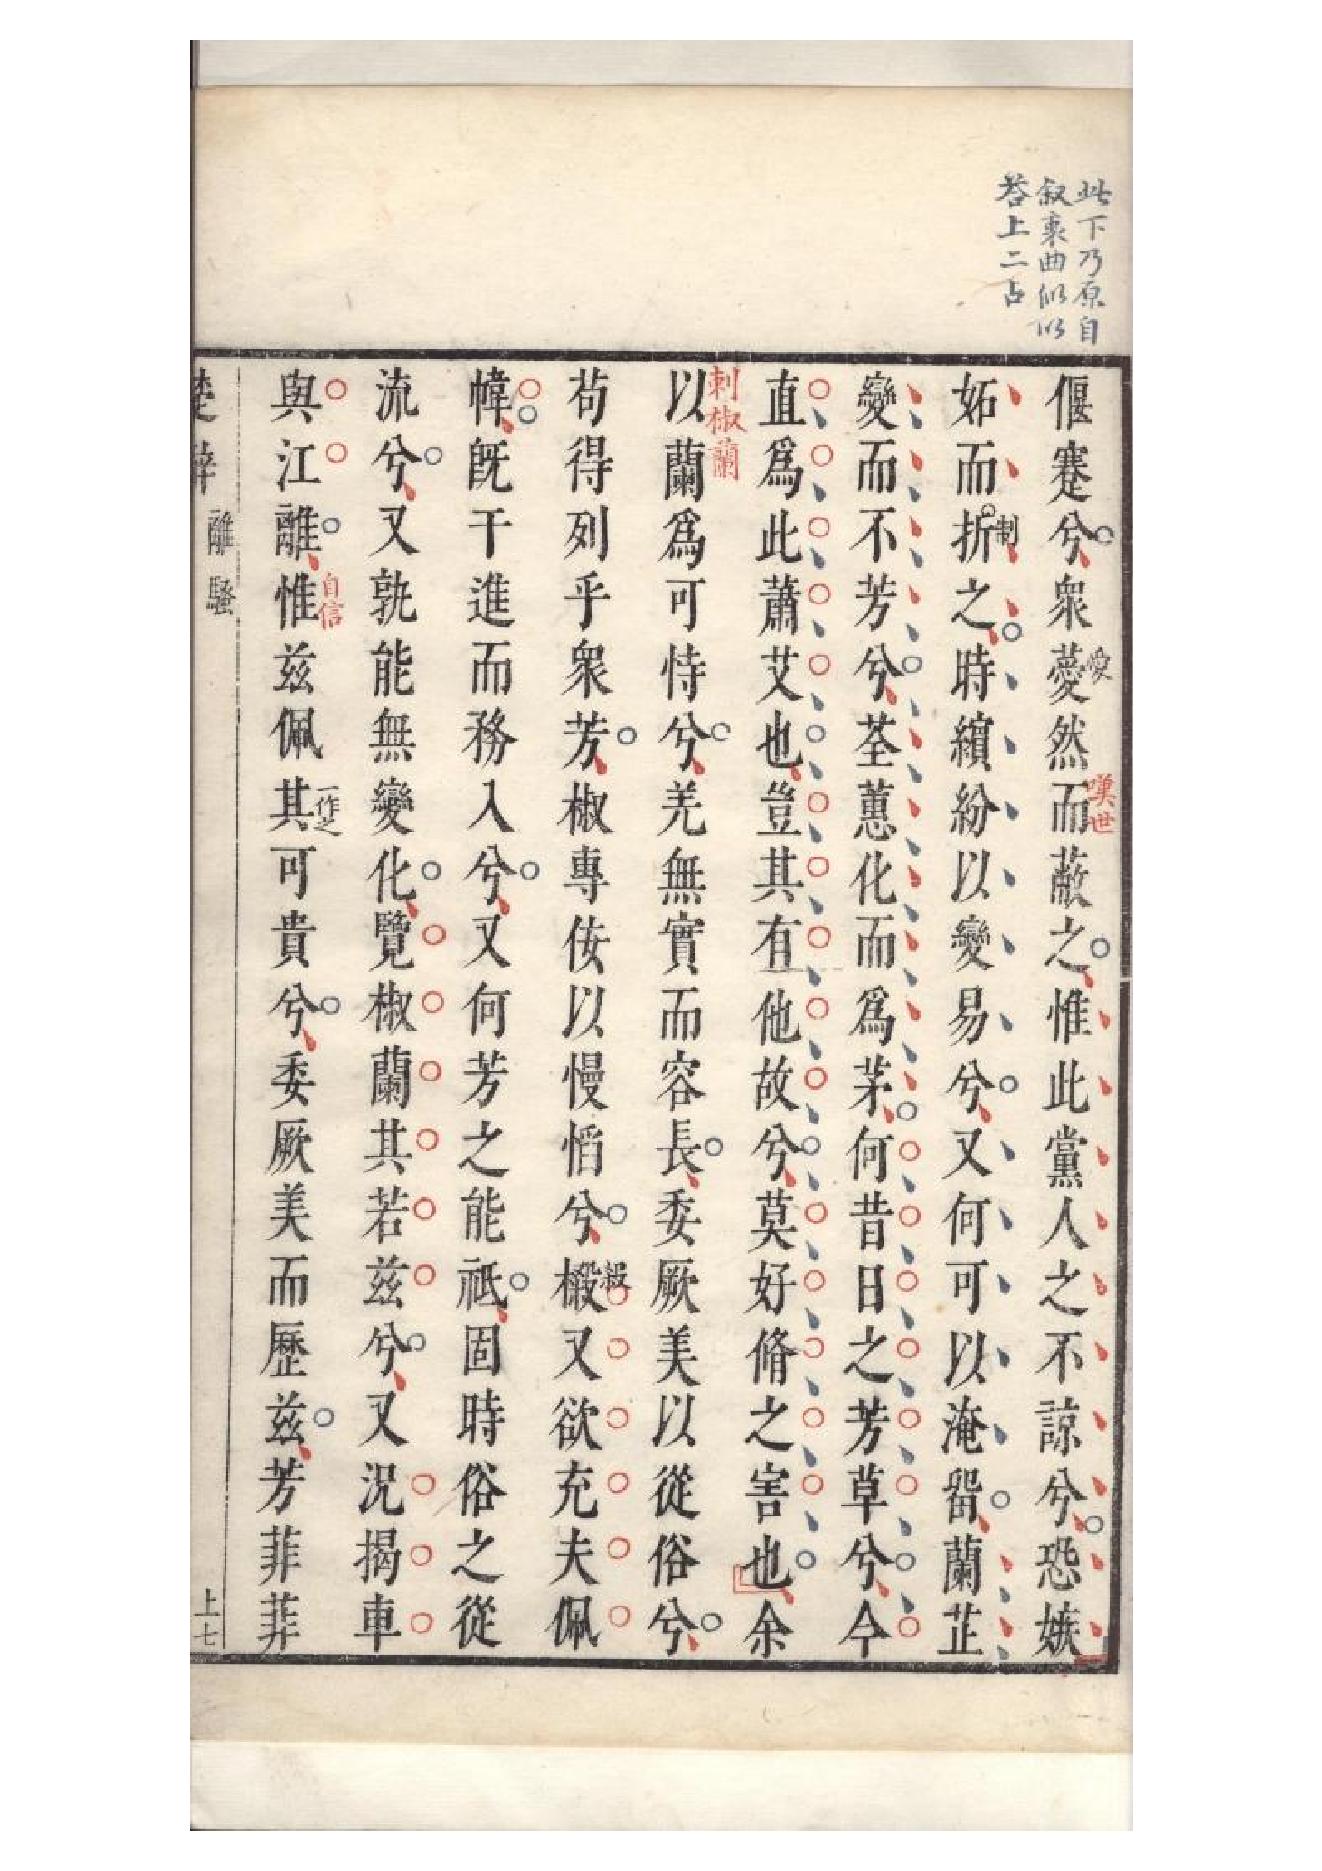 此下乃原自
叙衷曲似以
答上二占
偃蹇兮衆薆愛然而蔽之惟此黨人之不諒兮恐嫉
嘆世
妬而折制之時繽紛以變易兮又何可以淹留蘭芷
變而不芳兮荃蕙化而爲茅何昔日之芳草兮今
直爲此蕭艾也豈其有他故兮莫好脩之害也余
刺椒蘭
以蘭爲可恃兮羌無實而容長委厥美以從俗兮
苟得列乎衆芳椒專佞以慢慆兮樧殺又欲充夫佩
幃旣干進而務入兮又何芳之能祗固時俗之從
流兮又孰能無變化覽椒蘭其若兹兮又況揭車
與江離惟兹佩其一作之可貴兮委厥美而歷兹芳菲菲
自信
楚辭
離騷
上七